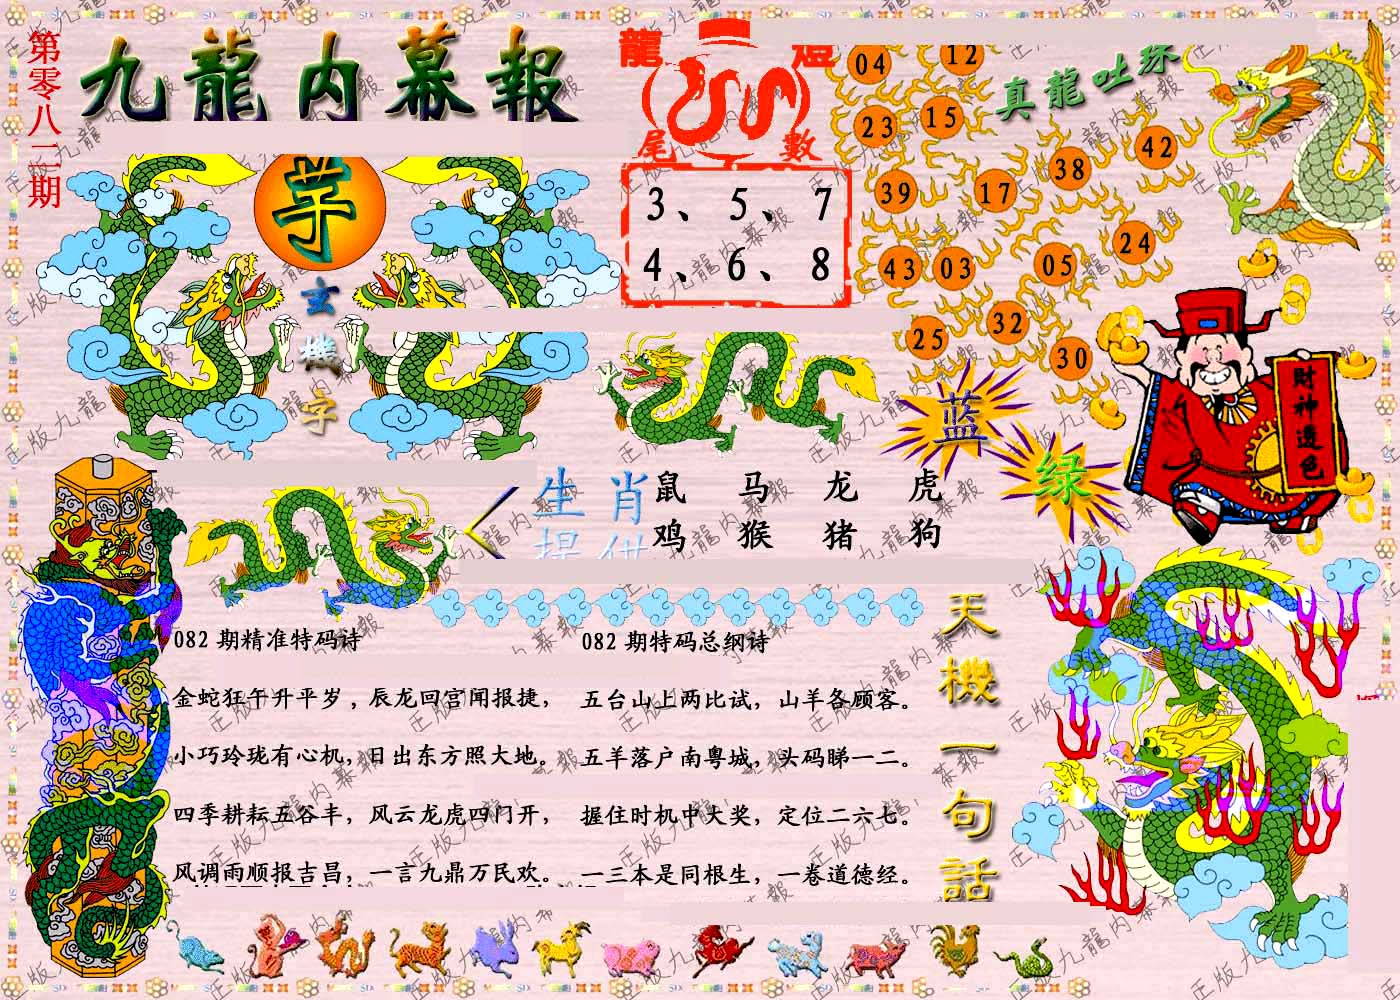 第零八二期
九龍内幕報
龍燈
尾數
3、5、7
4、6、8
04 12
23 15
39 17 38 42
43 03 05 24
25 32 30
真龍吐珠
玄機字
财神透色
蓝
绿
生肖
提供
鼠 马 龙 虎
鸡 猴 猪 狗
082 期精准特码诗
金蛇狂午升平岁，辰龙回宫闻报捷，
小巧玲珑有心机，日出东方照大地。
四季耕耘五谷丰，风云龙虎四门开，
风调雨顺报吉昌，一言九鼎万民欢。
082 期特码总纲诗
五台山上两比试，山羊各顾客。
五羊落户南粤城，头码睇一二。
握住时机中大奖，定位二六七。
一三本是同根生，一卷道德经。
天機一句話
正版九龍内幕報